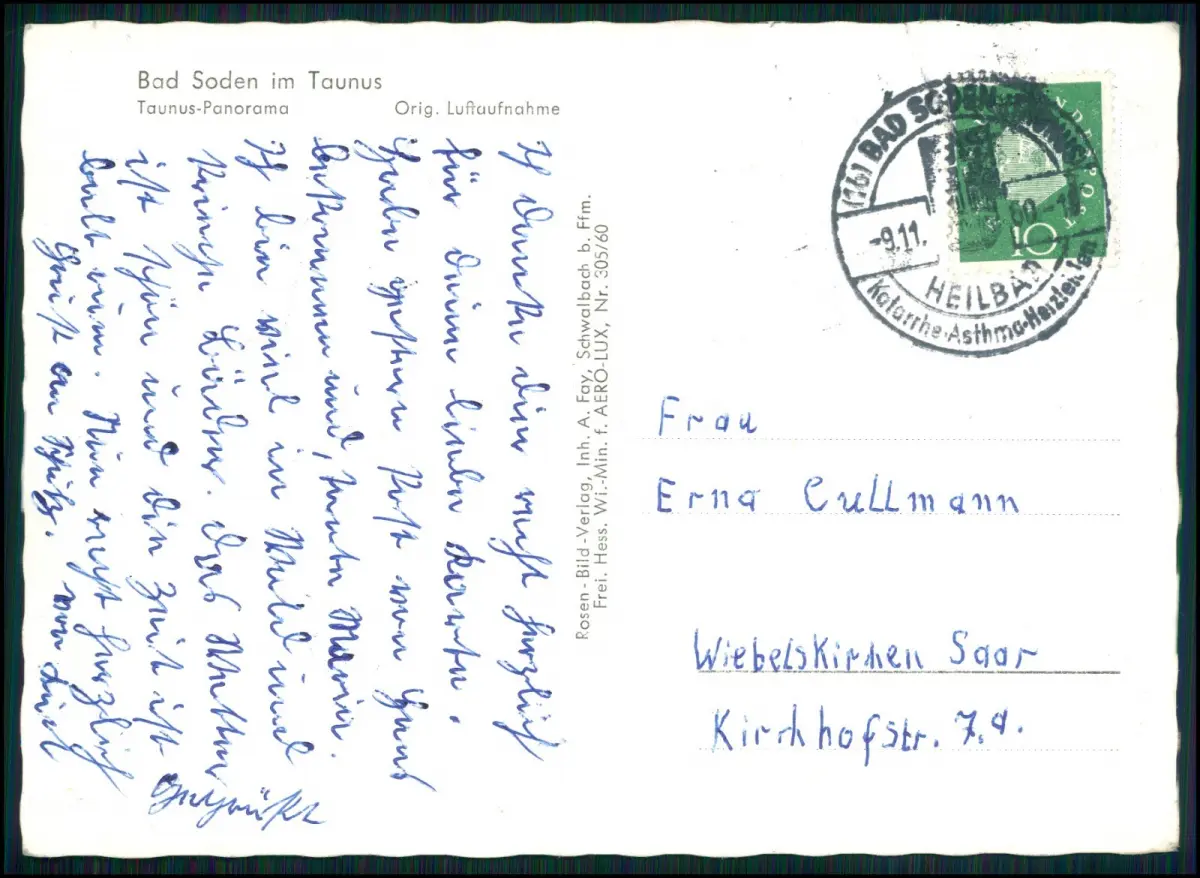 Bad Soden im Taunus
Taunus-Panorama Orig. Luftaufnahme
Ich danke dir recht herzlich
für deine lieben Karte.
Habe gestern Post von Hans
bekommen und, Tante Maria.
Ich bin viel im Wald und
Das Wetter
ist schön und die Zeit ist
bald rum. Nun recht herzlich
gegrüßt
von
an
Rosen-Bild-Verlag, Inh. A. Fay, Schwalbach b. Ffm.
Frei. Hess. Wi.-Min. f. AERO-LUX, Nr. 305/60
(16) BAD SODEN
-9.11. 60-1
HEILBAD
Katarrhe-Asthma-Herzleiden
10
Frau
Erna Cullmann
Wiebelskirchen Saar
Kirchhofstr. 7,a.